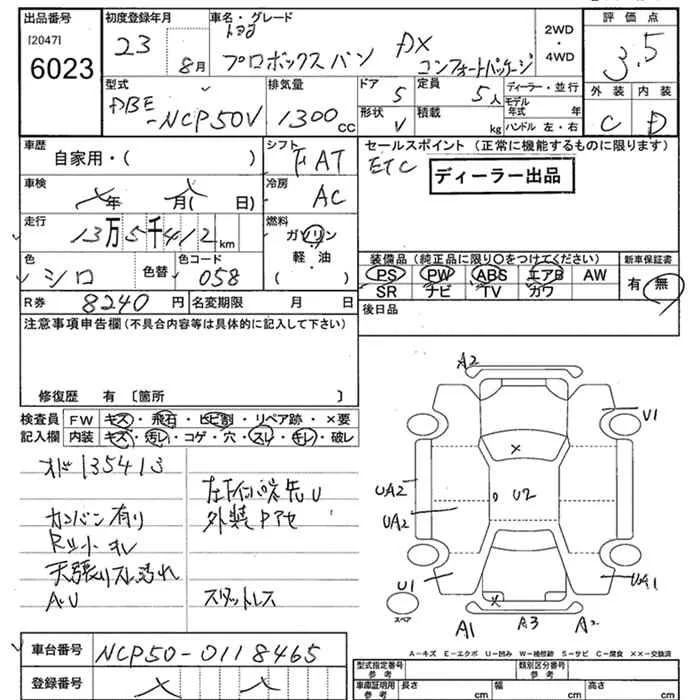 出品番号
[2047]
6023
初度登録年月
23 8月
車名・グレード
トヨタ
プロボックスバン DX コンフォートパッケージ
2WD
・
4WD
評価点
3.5
型式
DBE
-NCP50V
排気量
1300 CC
ドア
5
定員
5人
形状
V
積載
kg
ディーラー・並行
モデル年式 年
ハンドル 左・右
外装
C
内装
D
車歴
自家用・( )
シフト
FAT
車検
年 月( 日)
冷房
AC
走行
13万5千412km
燃料
ガソリン
軽・油
( )
色
シロ
色替
色コード
058
R券
8240円
名変期限 月 日
セールスポイント (正常に機能するものに限ります)
ETC
ディーラー出品
装備品(純正品に限り○をつけてください)
PS PW ABS エアB AW
SR ナビ TV カワ
新車保証書
有・無
後日品
注意事項申告欄(不具合内容等は具体的に記入して下さい)
修復歴 有 〔箇所 〕
検査員記入欄
FW キズ・飛石・ヒビ割・リペア跡・×要
内装 キズ・汚レ・コゲ・穴・スレ・キレ・破レ
135413
カンバン有り
天張りスレ汚れ
A・U
U
外装Pアセ
スタットレス
A2
U1
×
U2
UA2
UA2
U1
スペア
A1
A3
×
UA1
A-キズ E-エクボ U-凹み W-補修跡 S-サビ C-腐食 ××-交換済
車台番号
NCP50-0118465
登録番号
型式指定番号
参考
類別区分番号
参考
車庫証明用
参考
長さ cm
幅 cm
高さ cm